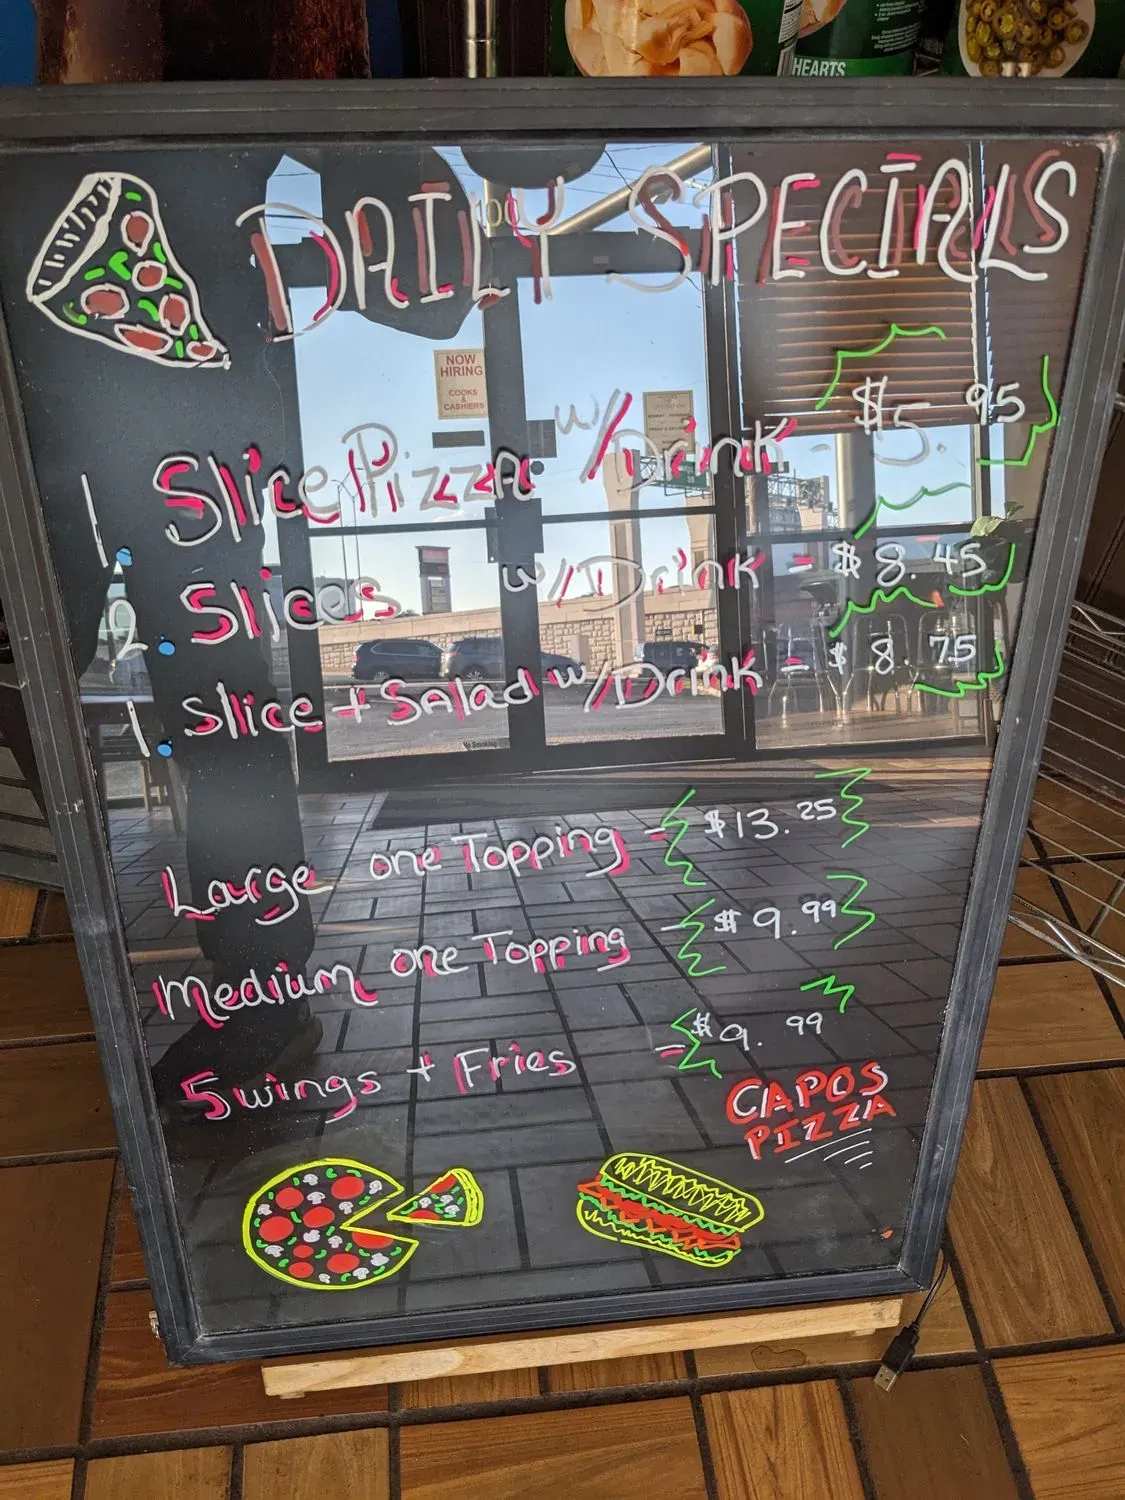 HEARTS
DAILY SPECIALS
NOW
HIRING
COOKS
&
CASHIERS
1. Slice Pizza w/Drink - $5.95
2. Slices w/Drink = $8.45
1. Slice + Salad w/Drink = $8.75
No Smoking
Large one Topping = $13.25
Medium one Topping - $9.99
5 wings + Fries = $9.99
CAPOS
PIZZA